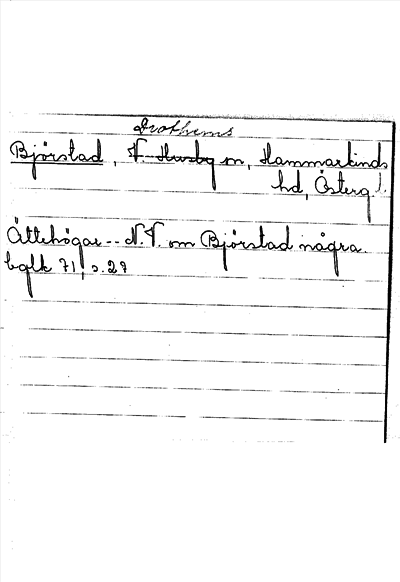 Drothems
Björstad, V. Husby sn, Hammarkinds
hd, Österg.
Ättehögar -- N.V. om Björstad några.
bglk 71, s. 27